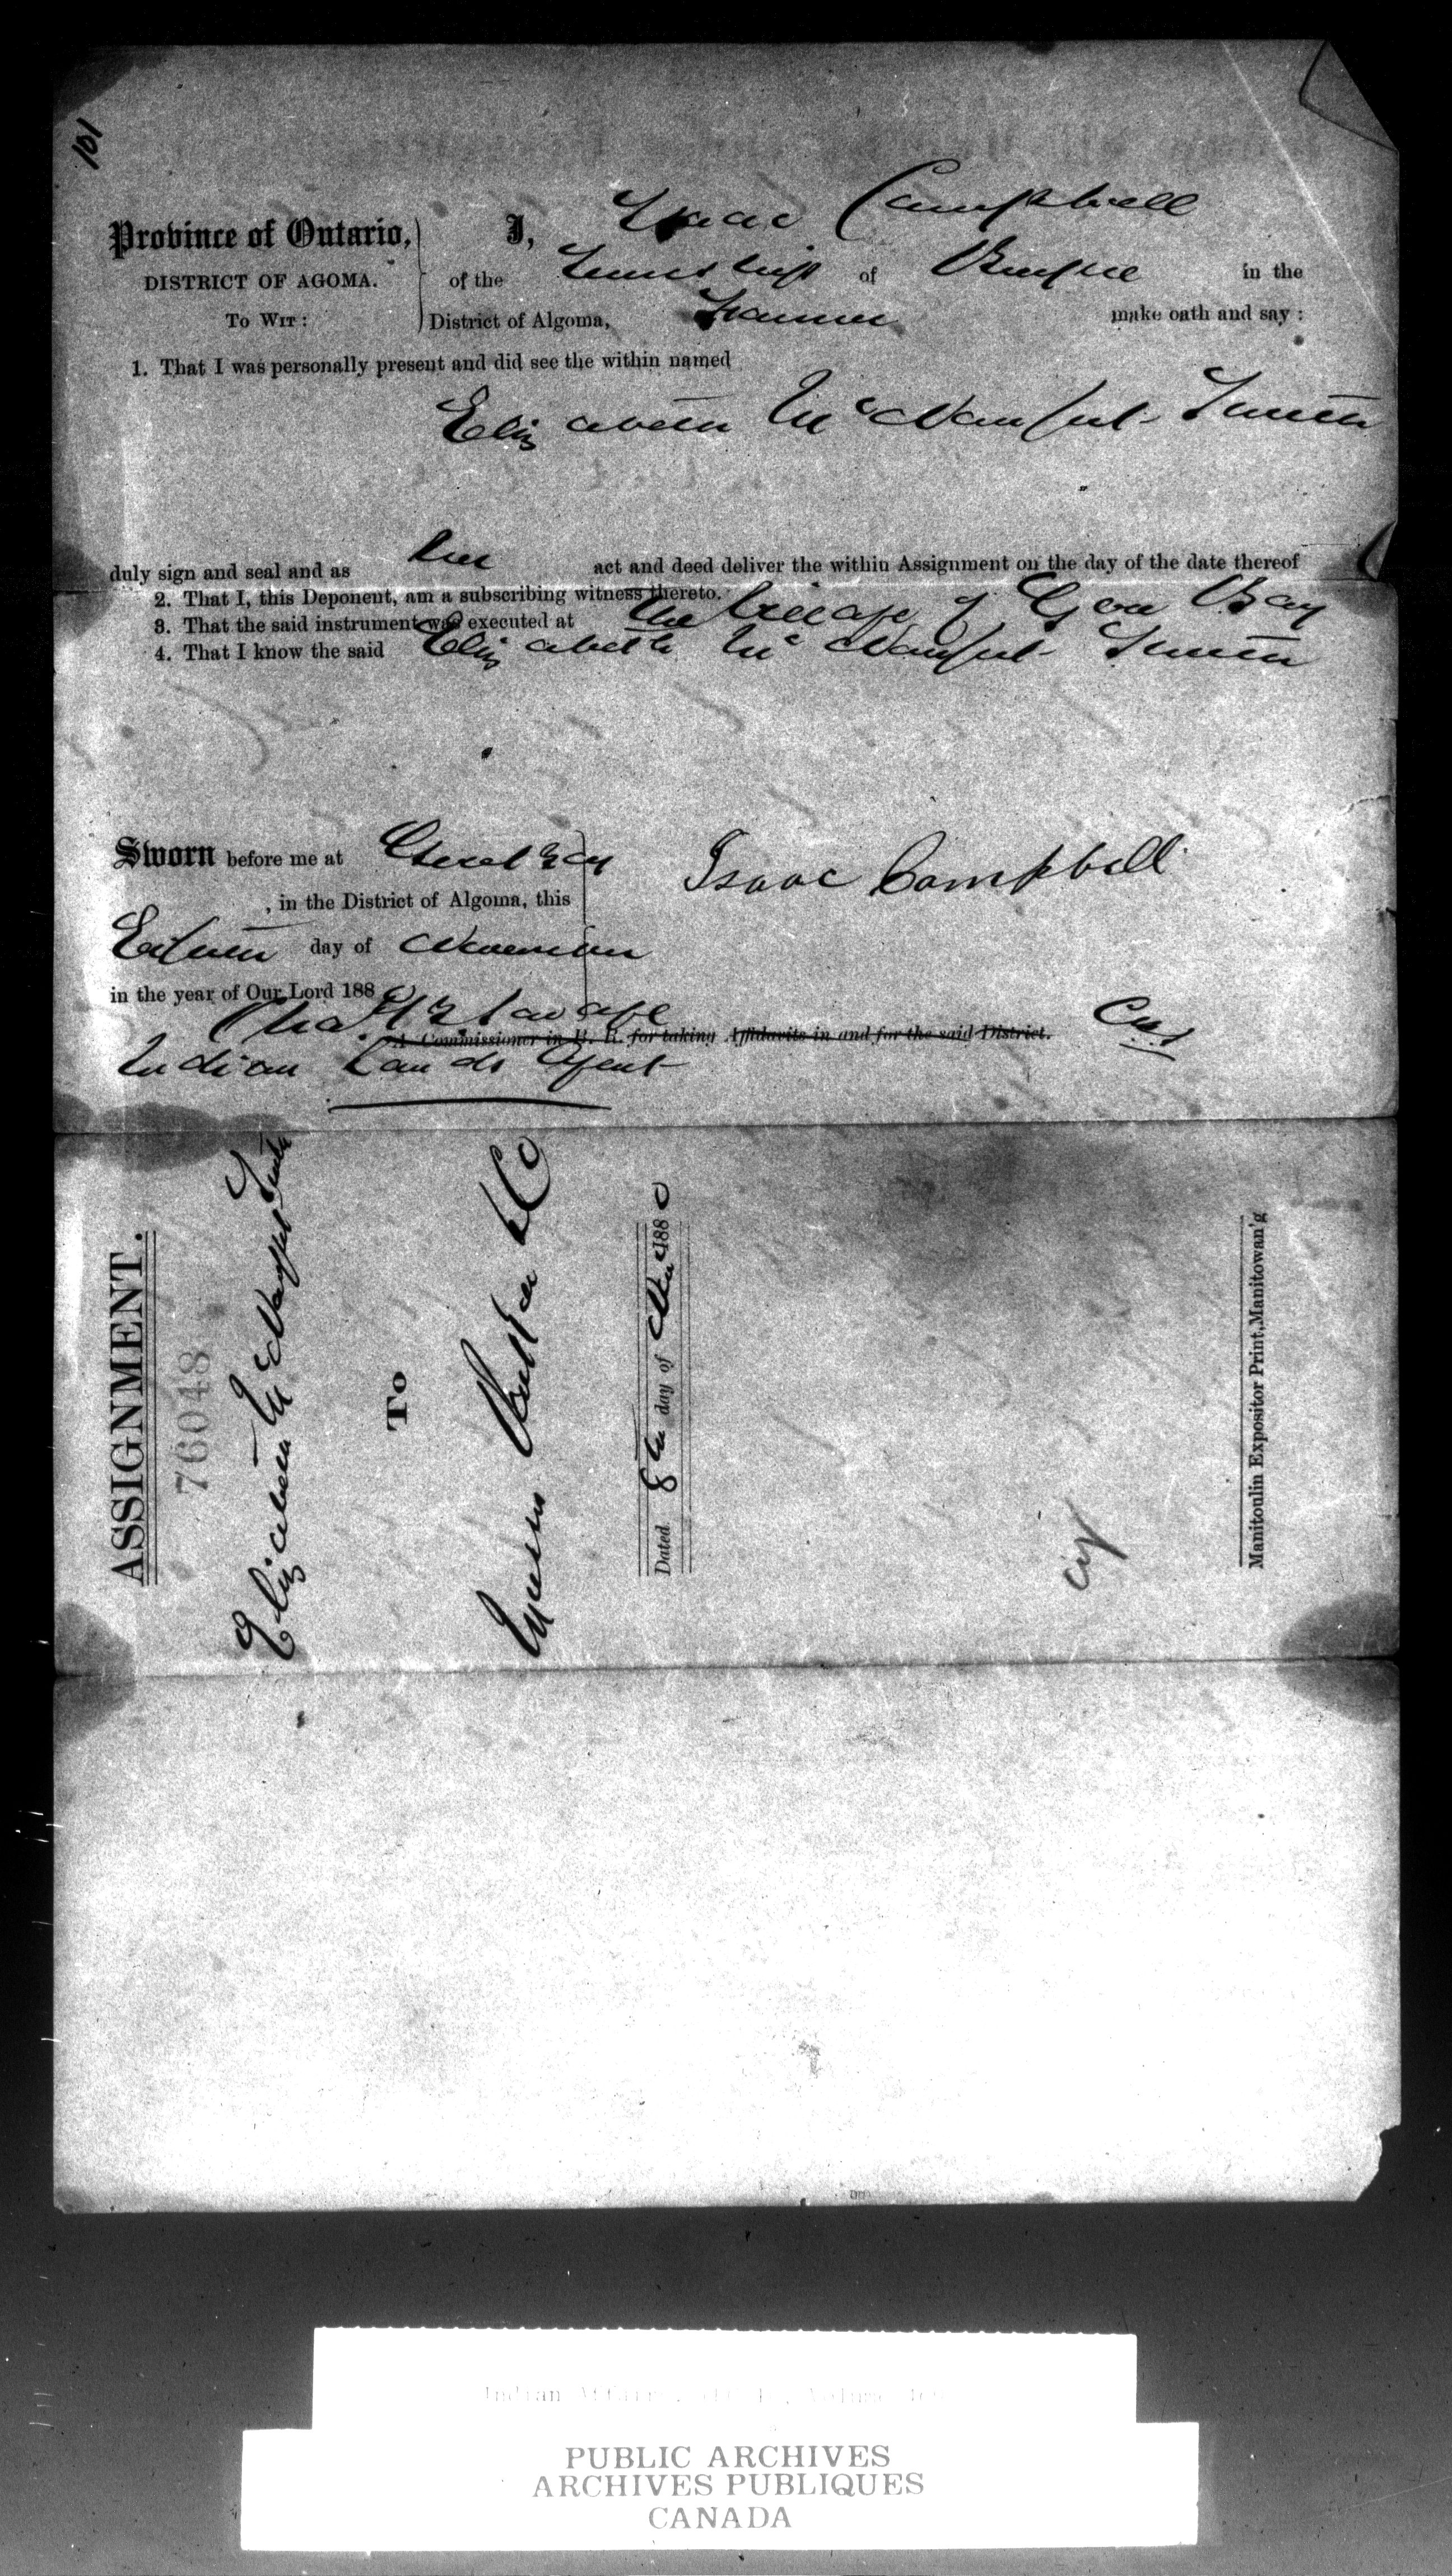 101
Province of Ontario, I, Isaac Campbell
DISTRICT OF AGOMA. of the Township of Burpee in the
To Wit: District of Algoma, Farmer make oath and say:
1. That I was personally present and did see the within named
Elizabeth McNaught Smith
duly sign and seal and as her act and deed deliver the within Assignment on the day of the date thereof
2. That I, this Deponent, am a subscribing witness thereto.
3. That the said instrument was executed at the Village of Gore Bay
4. That I know the said Elizabeth McNaught Smith
Sworn before me at Gore Bay
Isaac Campbell
, in the District of Algoma, this
Eighth day of November
in the year of Our Lord 1880
A Commissioner in B. R. for taking Affidavits in and for the said District.
Indian Lands Agent
ASSIGNMENT.
76048
Elizabeth McNaught Smith
To
& Co
Dated 8th day of Nov 1880
Manitoulin Expositor Print, Manitowan'g
PUBLIC ARCHIVES
ARCHIVES PUBLIQUES
CANADA